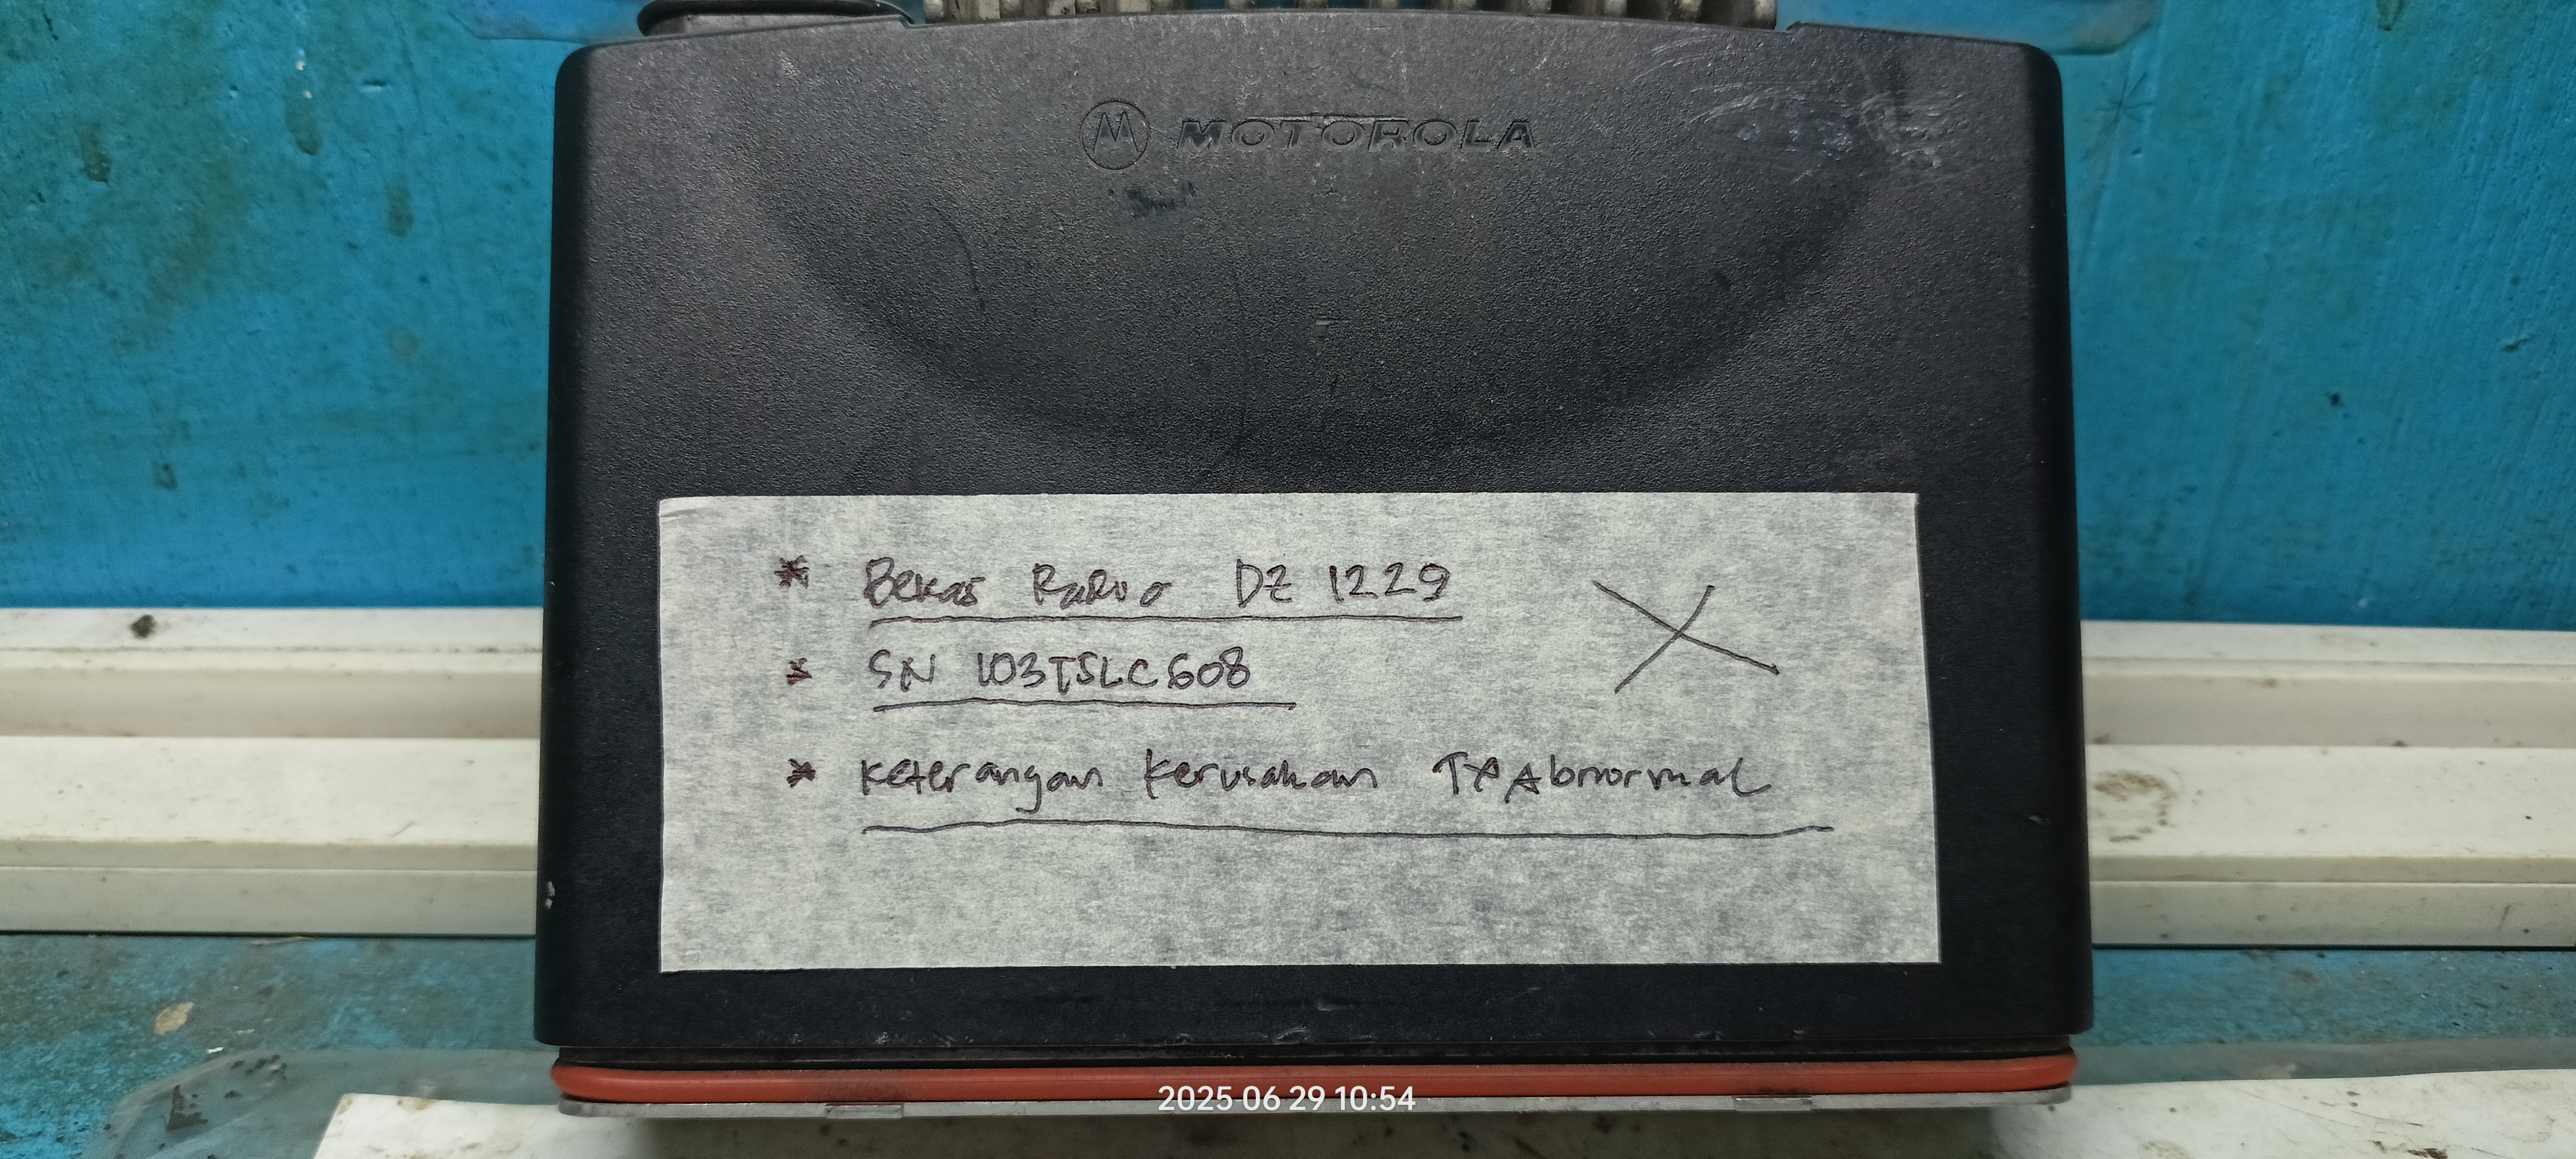 MOTOROLA
* Bekas Radio DZ 1229
* SN 103TSLC608
* Keterangan Kerusakan TX Abnormal
2025 06 29 10:54